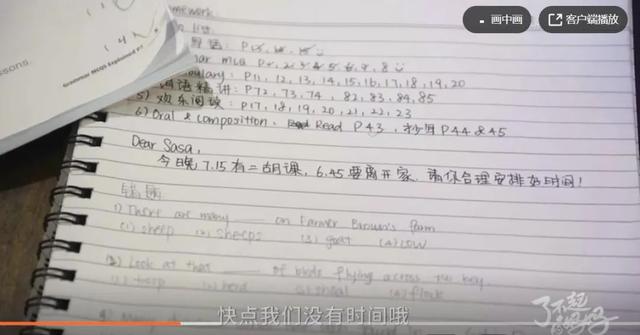 画中画
客户端播放
ssons.
Grammar MCQ Explained P1
mework
list
P11, 12, 13, 14, 15, 16, 17, 18, 19, 20
词语精讲: P72, 73, 74, 82, 83, 84, 85
5) 欢乐阅读: P17, 18, 19, 20, 21, 22, 23
6) Oral & composition. Read P43, 抄写 P44 & 45
Dear Sasa,
今晚7.15有二胡课, 6.45要离开家. 请你合理安排好时间!
1) There are many on Farmer Brown's farm
(1) sheep (2) sheeps (3) goat (4) cow
(2) Look at that of birds flying across the
(2) herd (4) flock
快点我们没有时间哦
了不起的妈妈